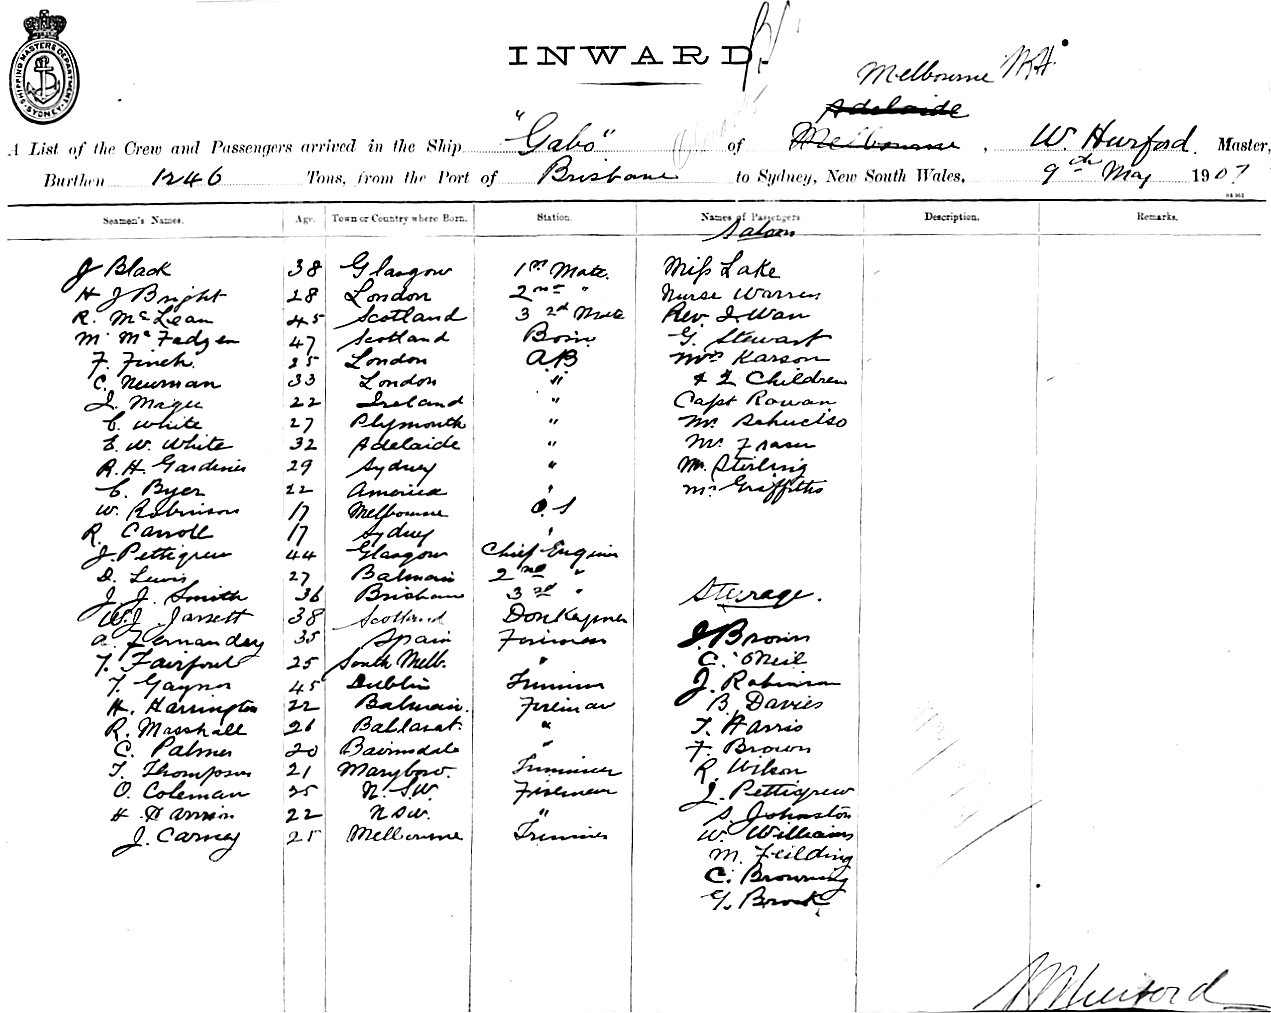 SHIPPING MASTERS DEPARTMENT SYDNEY
INWARD.
Melbourne
Adelaide
A List of the Crew and Passengers arrived in the Ship "Gabo" of Melbourne, W. Hurford Master,
Burthen 1246 Tons, from the Port of Brisbane to Sydney, New South Wales, 9th May 1907
Seamen's Names. Age. Town or Country where Born. Station. Names of Passengers Description. Remarks.
Saloon
J Black 38 Glasgow 1st Mate. Miss Lake
H J Bright 28 London 2nd " Nurse Warren
R. McLean 45 Scotland 3rd Mate Rev J. Wan
M McFadgen 47 Scotland Bosn G. Stewart
F. Finch 25 London AB Mrs Karson
C. Newman 33 London " & 2 Children
J. Magee 22 Ireland " Capt Rowan
C. White 27 Plymouth " Mr
E. W. White 32 Adelaide " Mr Fraser
R. H. Gardiner 29 Sydney " Mr Stirling
C. Byer 22 America " Mr Griffiths
W. Robinson 17 Melbourne O S
R. Carroll 17 Sydney "
J. Pettigrew 44 Glasgow Chief Engineer
D. Lewis 27 Balmain 2nd "
J. J. Smith 36 Brisbane 3rd "
Steerage.
W. J. Jarrett 38 Scotland Donkeyman
A. Fernandez 35 Spain Fireman J. Brown
T. Fairfoul 25 South Melb. " C. O'Neil
T. Gaynor 45 Dublin Trimmer J. Robinson
H. Harrington 22 Balmain. Fireman B. Davies
R. Marshall 26 Ballarat. " T. Harris
C. Palmer 20 Bairnsdale " F. Brown
T. Thompson 21 Maryboro. Trimmer R. Wilson
O. Coleman 25 N.S.W. Fireman J. Pettigrew
H. 22 NSW. " S. Johnston
J. Carney 25 Melbourne Trimmer W. Williams
M. Feilding
C. Browning
G. Brock
W Hurford